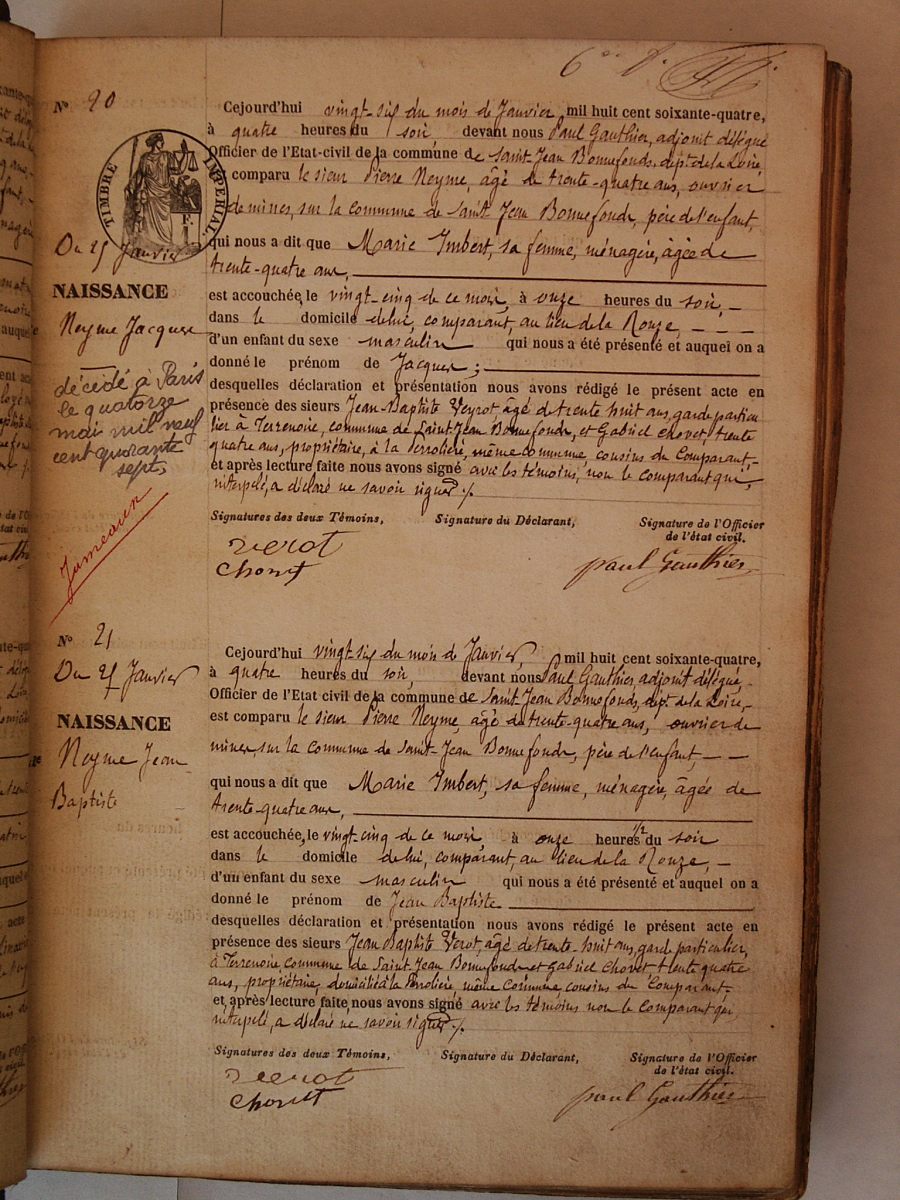 6
N° 20
Cejourd'hui vingt-six du mois de Janvier mil huit cent soixante-quatre,
à quatre heures du soir devant nous Paul Gauthier, adjoint délégué
Officier de l'Etat-civil de la commune de Saint Jean Bonnefonds, dépt. de la Loire,
TIMBRE IMPERIAL
comparu le sieur Pierre Neyme, âgé de trente-quatre ans, ouvrier
de mines, sur la commune de Saint Jean Bonnefonds, père de l'enfant,
Du 25 Janvier
qui nous a dit que Marie Imbert, sa femme, ménagère, âgée de
trente-quatre ans,
NAISSANCE
est accouchée, le vingt-cinq de ce mois, à onze heures du soir,
Neyme Jacques
dans le domicile de lui, comparant, au lieu de la Ronze,
d'un enfant du sexe masculin qui nous a été présenté et auquel on a
donné le prénom de Jacques ;
décédé à Paris
le quatorze
mai mil neuf
cent quarante
sept
desquelles déclaration et présentation nous avons rédigé le présent acte en
présence des sieurs Jean-Baptiste Verot, âgé de trente huit ans, garde particu
lier à Terrenoire, commune de Saint-Jean Bonnefonds, et Gabriel Chovet trente
quatre ans, propriétaire, à la Perrolière, même commune cousins du Comparant,
et après lecture faite nous avons signé avec les témoins, non le comparant qui,
interpelé, a déclaré ne savoir signer ./.
Jumeaux
Signatures des deux Témoins, Signature du Déclarant, Signature de l'Officier
de l'état civil.
Verot
Chovet
paul Gauthier
N° 21
Cejourd'hui vingt-six du mois de Janvier, mil huit cent soixante-quatre,
Du 25 Janvier
à quatre heures du soir, devant nous Paul Gauthier, adjoint délégué
Officier de l'Etat civil de la commune de Saint Jean Bonnefonds, dépt. de la Loire,
NAISSANCE
est comparu le sieur Pierre Neyme, âgé de trente-quatre ans, ouvrier de
mines, sur la commune de Saint-Jean Bonnefonds, père de l'enfant,
Neyme Jean
Baptiste
qui nous a dit que Marie Imbert, sa femme, ménagère, âgée de
trente-quatre ans,
est accouchée, le vingt-cinq de ce mois à onze heures 1/2 du soir
dans le domicile de lui, comparant, au lieu de la Ronze,
d'un enfant du sexe masculin qui nous a été présenté et auquel on a
donné le prénom de Jean Baptiste
desquelles déclaration et présentation nous avons rédigé le présent acte en
présence des sieurs Jean Baptiste Verot, âgé de trente huit ans, garde particulier,
à Terrenoire, commune de Saint Jean Bonnefonds et Gabriel Chovet trente quatre
ans, propriétaire, domicilié à la Perrolière, même commune cousins du Comparant
et après lecture faite nous avons signé avec les témoins non le comparant qui,
interpelé, a déclaré ne savoir signer ./.
Signatures des deux Témoins, Signature du Déclarant, Signature de l'Officier
de l'état civil.
Verot
Chovet
paul Gauthier